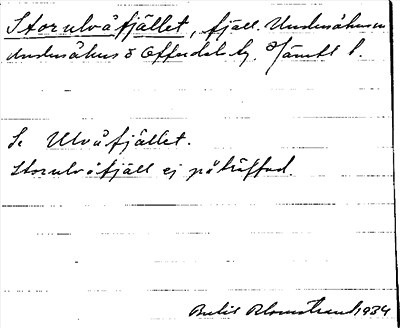 Storulvåfjället, fjäll. Undersåkers sn
Undersåkers o Offerdals tg. Jämtl l.
Se Ulvåfjället.
Storulvåfjäll ej påträffad.
Blomstrand 1934